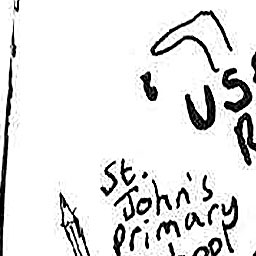 US
R
St.
John's
Primary